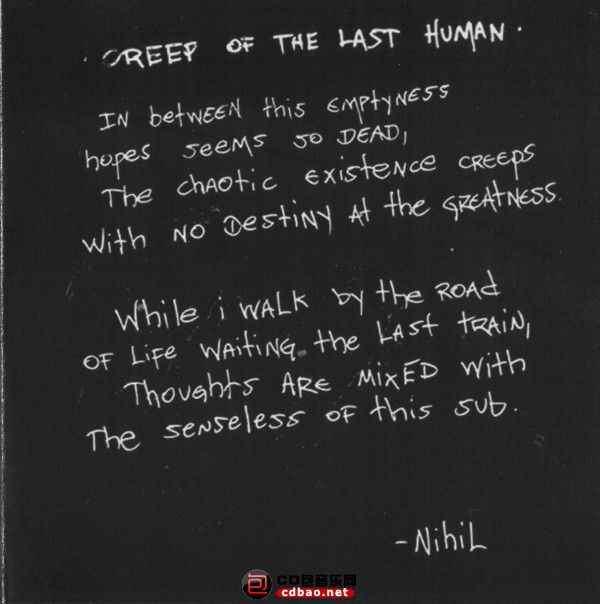 · CREEP OF THE LAST HUMAN ·
IN between this EMPTYNESS
hopes seems so DEAD,
The chaotic existence creeps
With NO Destiny At the GREATNESS.
While i WALK by the ROAD
OF Life waiting the LAST TRAIN,
Thoughts ARE MIXED With
The senseless OF this sub.
-NihiL
CD包音乐网
cdbao.net